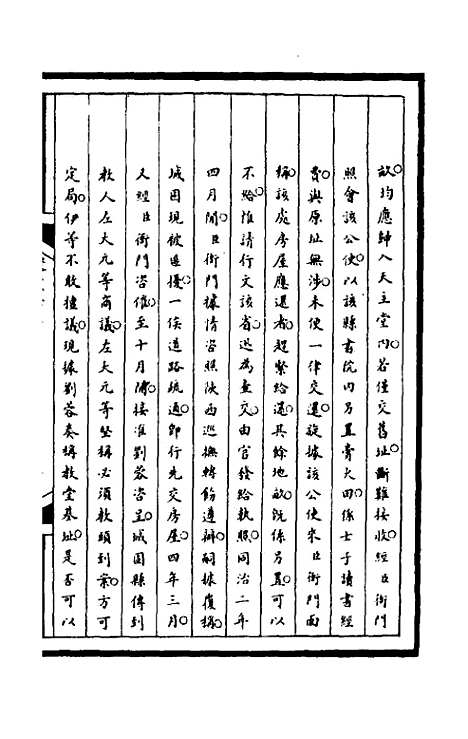 畝均應歸入天主堂內若僅交舊址斷難接收經臣衙門
照會該公使以該縣書院內另置膏火田係士子讀書經
費與原址無涉未便一律交還旋據該公使來臣衙門面
稱該處房屋應還者趕緊給還其餘地畝既係另置可以
不給惟請行文該省迅為查交由官發給執照同治二年
四月間臣衙門據情咨照陝西巡撫轉飭遵辦嗣據復稱
城固現被匪擾一俟道路疏通即行先交房屋四年三月
又經臣衙門咨催至十月陳接准劉蓉咨呈城固縣傳到
教人左大元等商議左大元等堅稱必須教頭到案方可
定局伊等不敢擅議現據劉蓉奏稱教堂基址是否可以